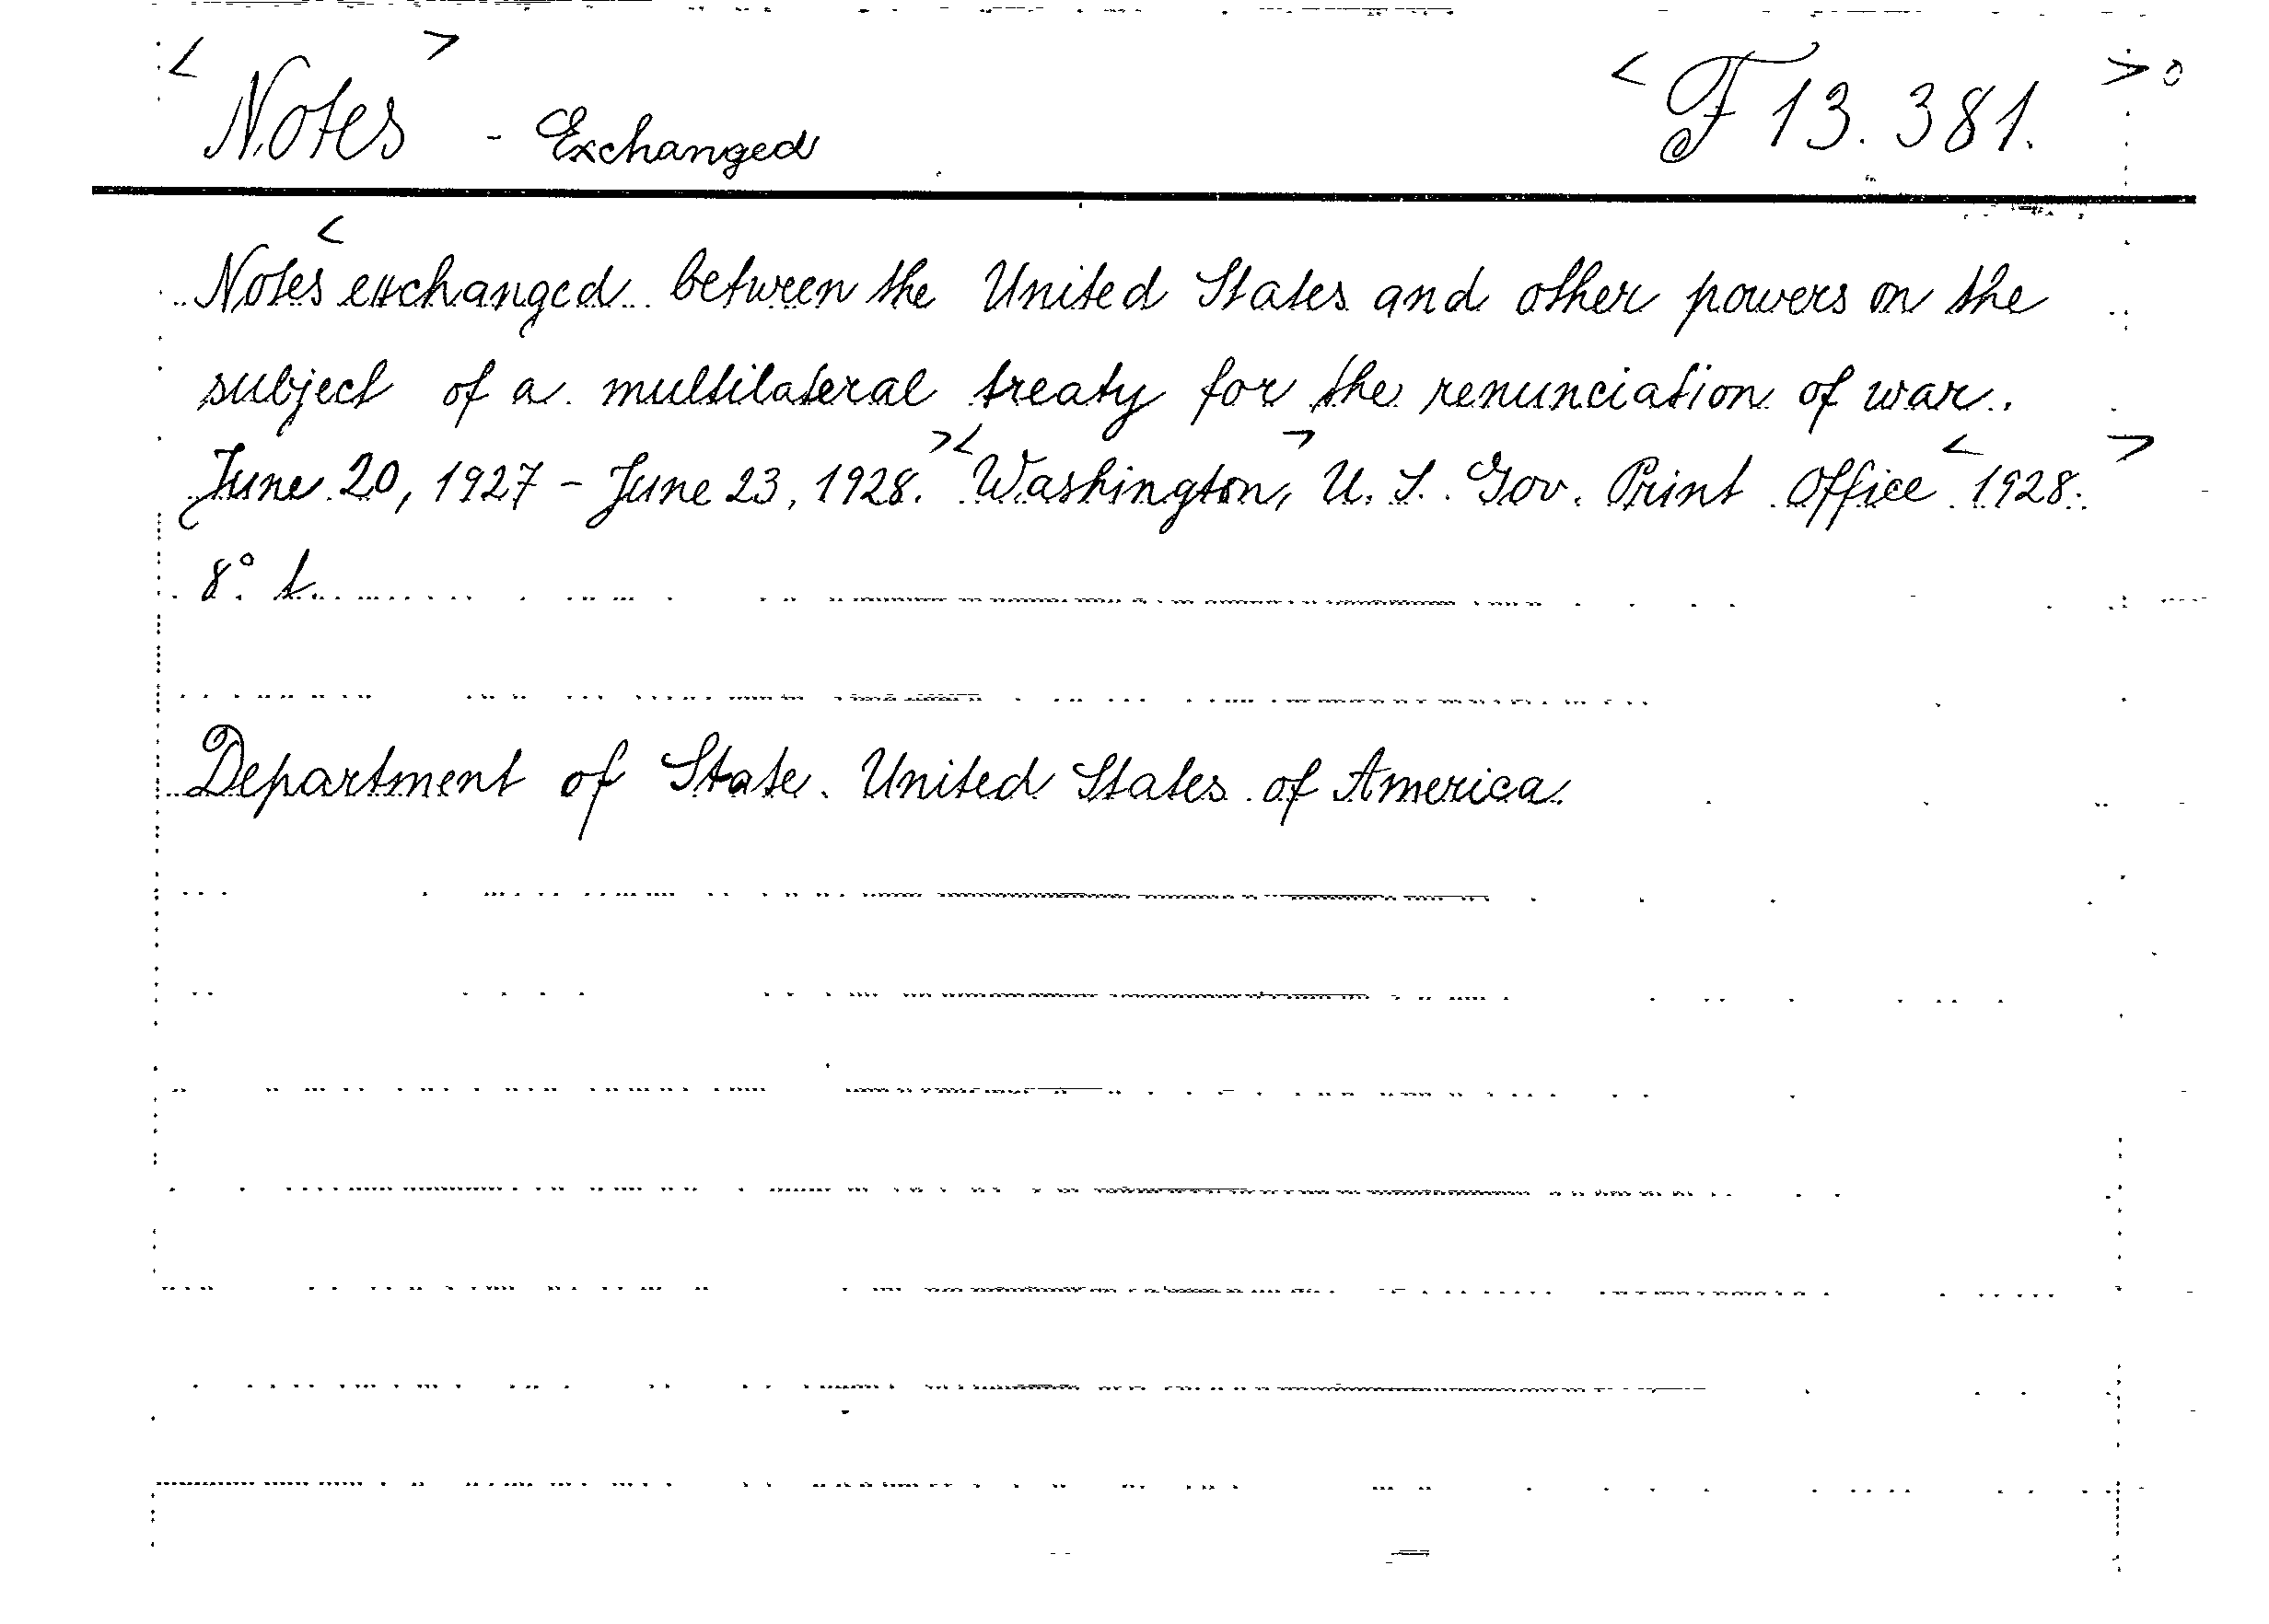 < Notes > - Exchanged < F 13.381. > 0
< Notes exchanged between the United States and other powers on the
subject of a multilateral treaty for the renunciation of war.
June 20, 1927 - June 23, 1928. >< Washington, > U. S. Gov. Print Office < 1928. >
8° t.
Department of State. United States of America.